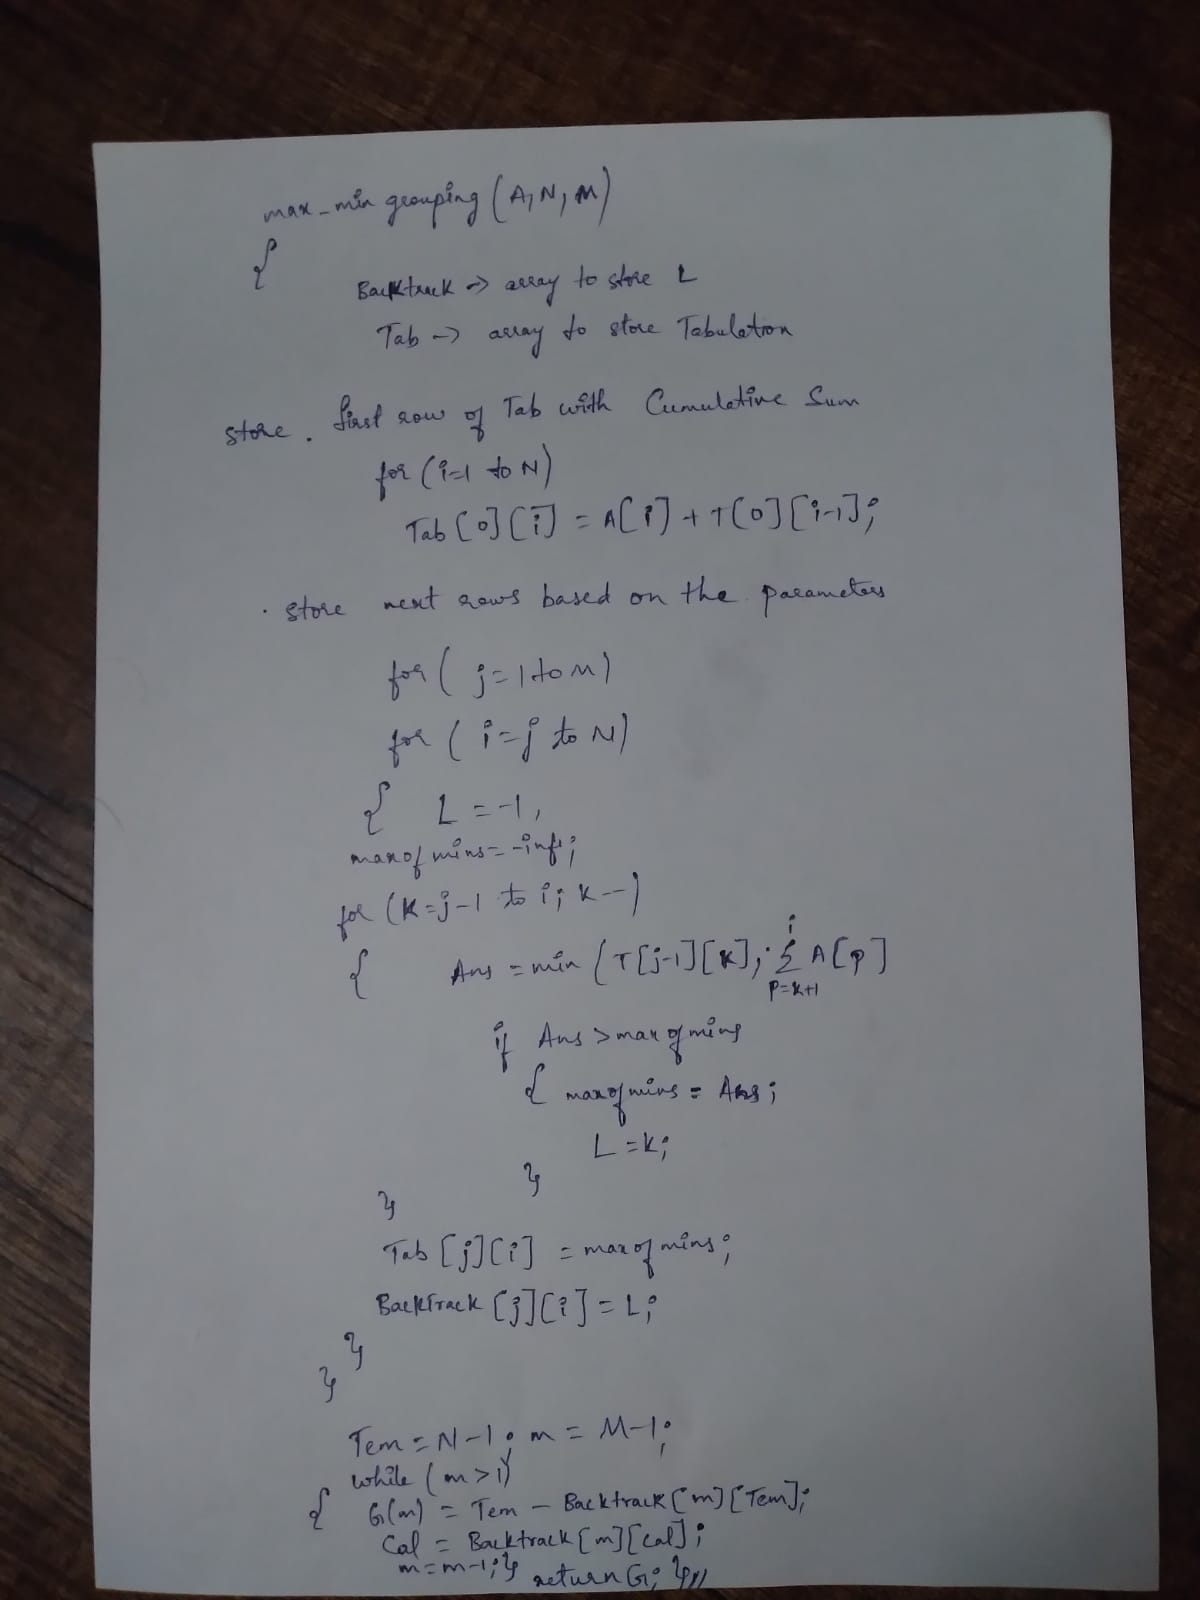 max-min grouping (A, N, M)
{
Backtrack -> array to store L
Tab -> array to store Tabulation
store . first row of Tab with Cumulative Sum
for (i=1 to N)
Tab [0][i] = A[i] + T[0][i-1];
. store next rows based on the parameters
for ( j=1 to M)
for ( i=j to N)
{ L = -1,
maxofmins = -inf;
for (K=j-1 to i; k--)
{ Ans = min (T[j-1][K], i Σ A[p]
p=k+1
if Ans > maxofmins
{ maxofmins = Ans;
L = k;
}
}
Tab [j][i] = maxofmins;
BackTrack [j][i] = L;
}
}
Tem = N-1; m = M-1;
while (m>1)
{ G(m) = Tem - Backtrack[m][Tem];
Cal = Backtrack[m][Cal];
m=m-1;} return G; }//